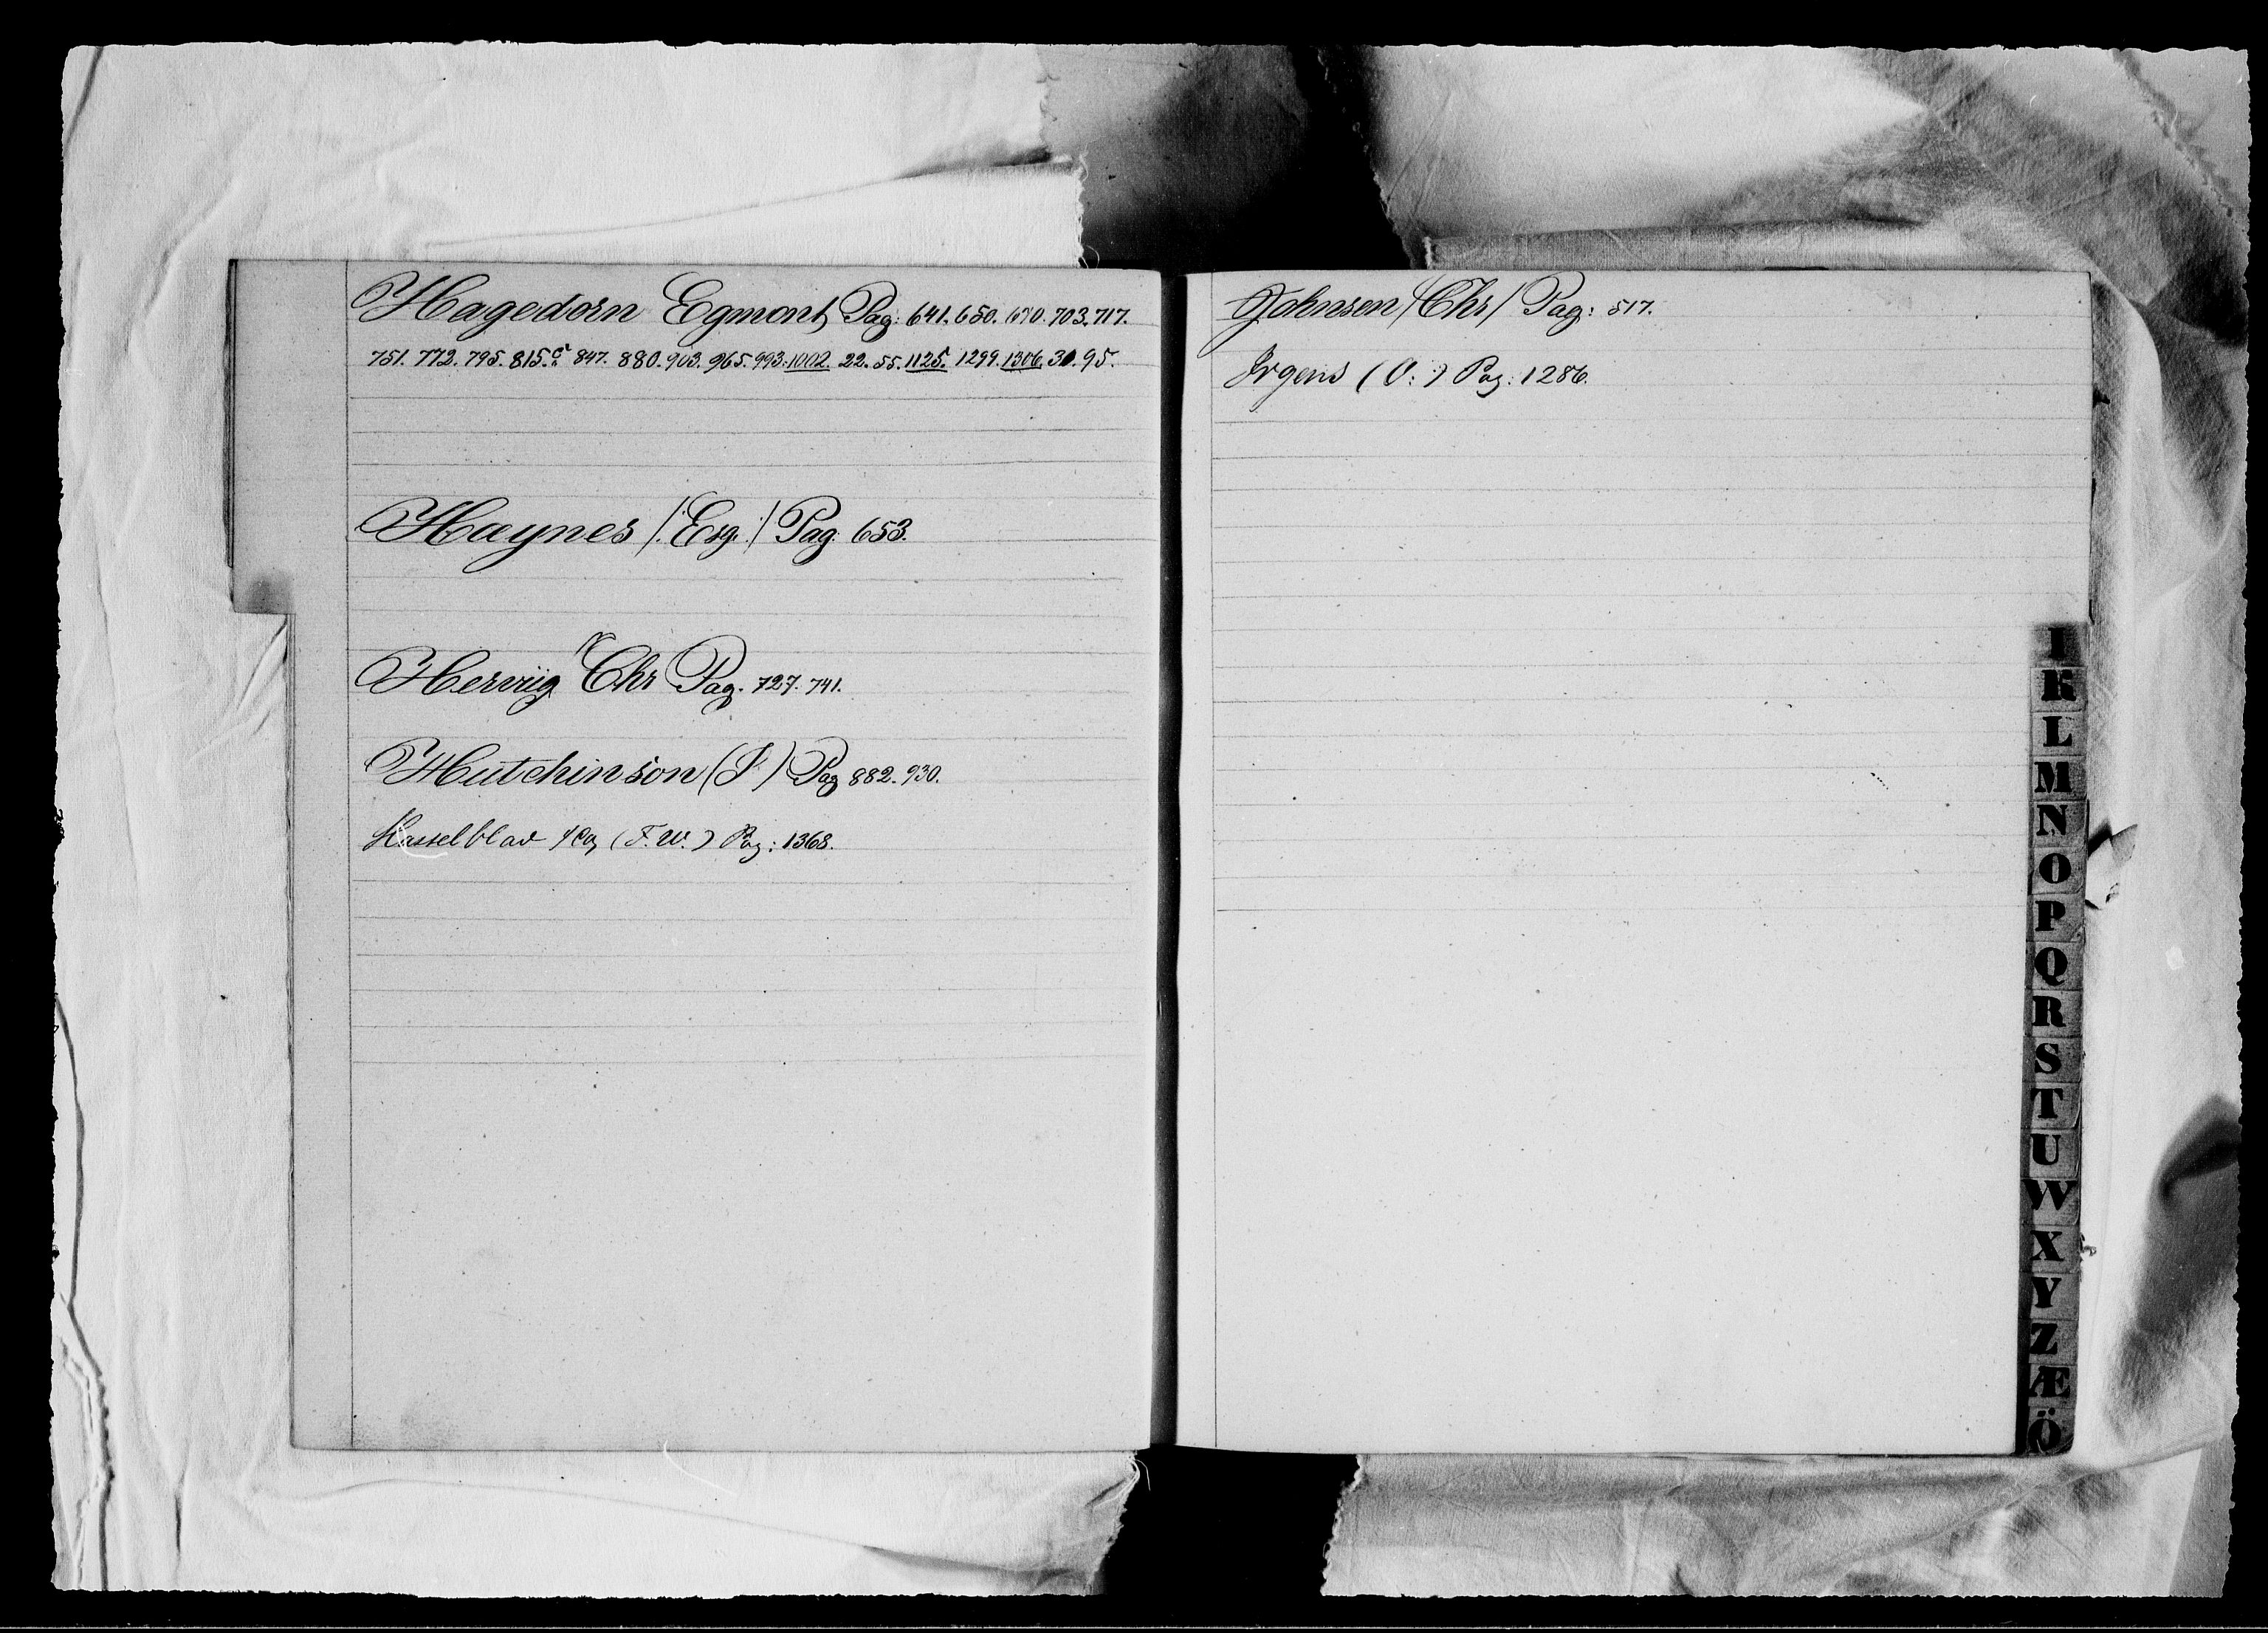 Hagedorn Egmont, Pag: 641. 650. 670. 703. 717.
751. 772. 795. 815. 847. 880. 903. 965. 993. 1002. 22. 55. 1125. 1299. 1306. 30. 95.
Haynes /: Esq. :/ Pag. 653.
Herviig Chr Pag. 727. 741.
Hutchinson (J) Pag 882. 930.
Hasselblad (F. W.) Pag: 1368.
Johnsen /Chr/ Pag: 517.
Irgens (O:) Pag: 1286.
I
K
L
M
N
O
P
Q
R
S
T
U
W
X
Y
Z
Æ
Ö